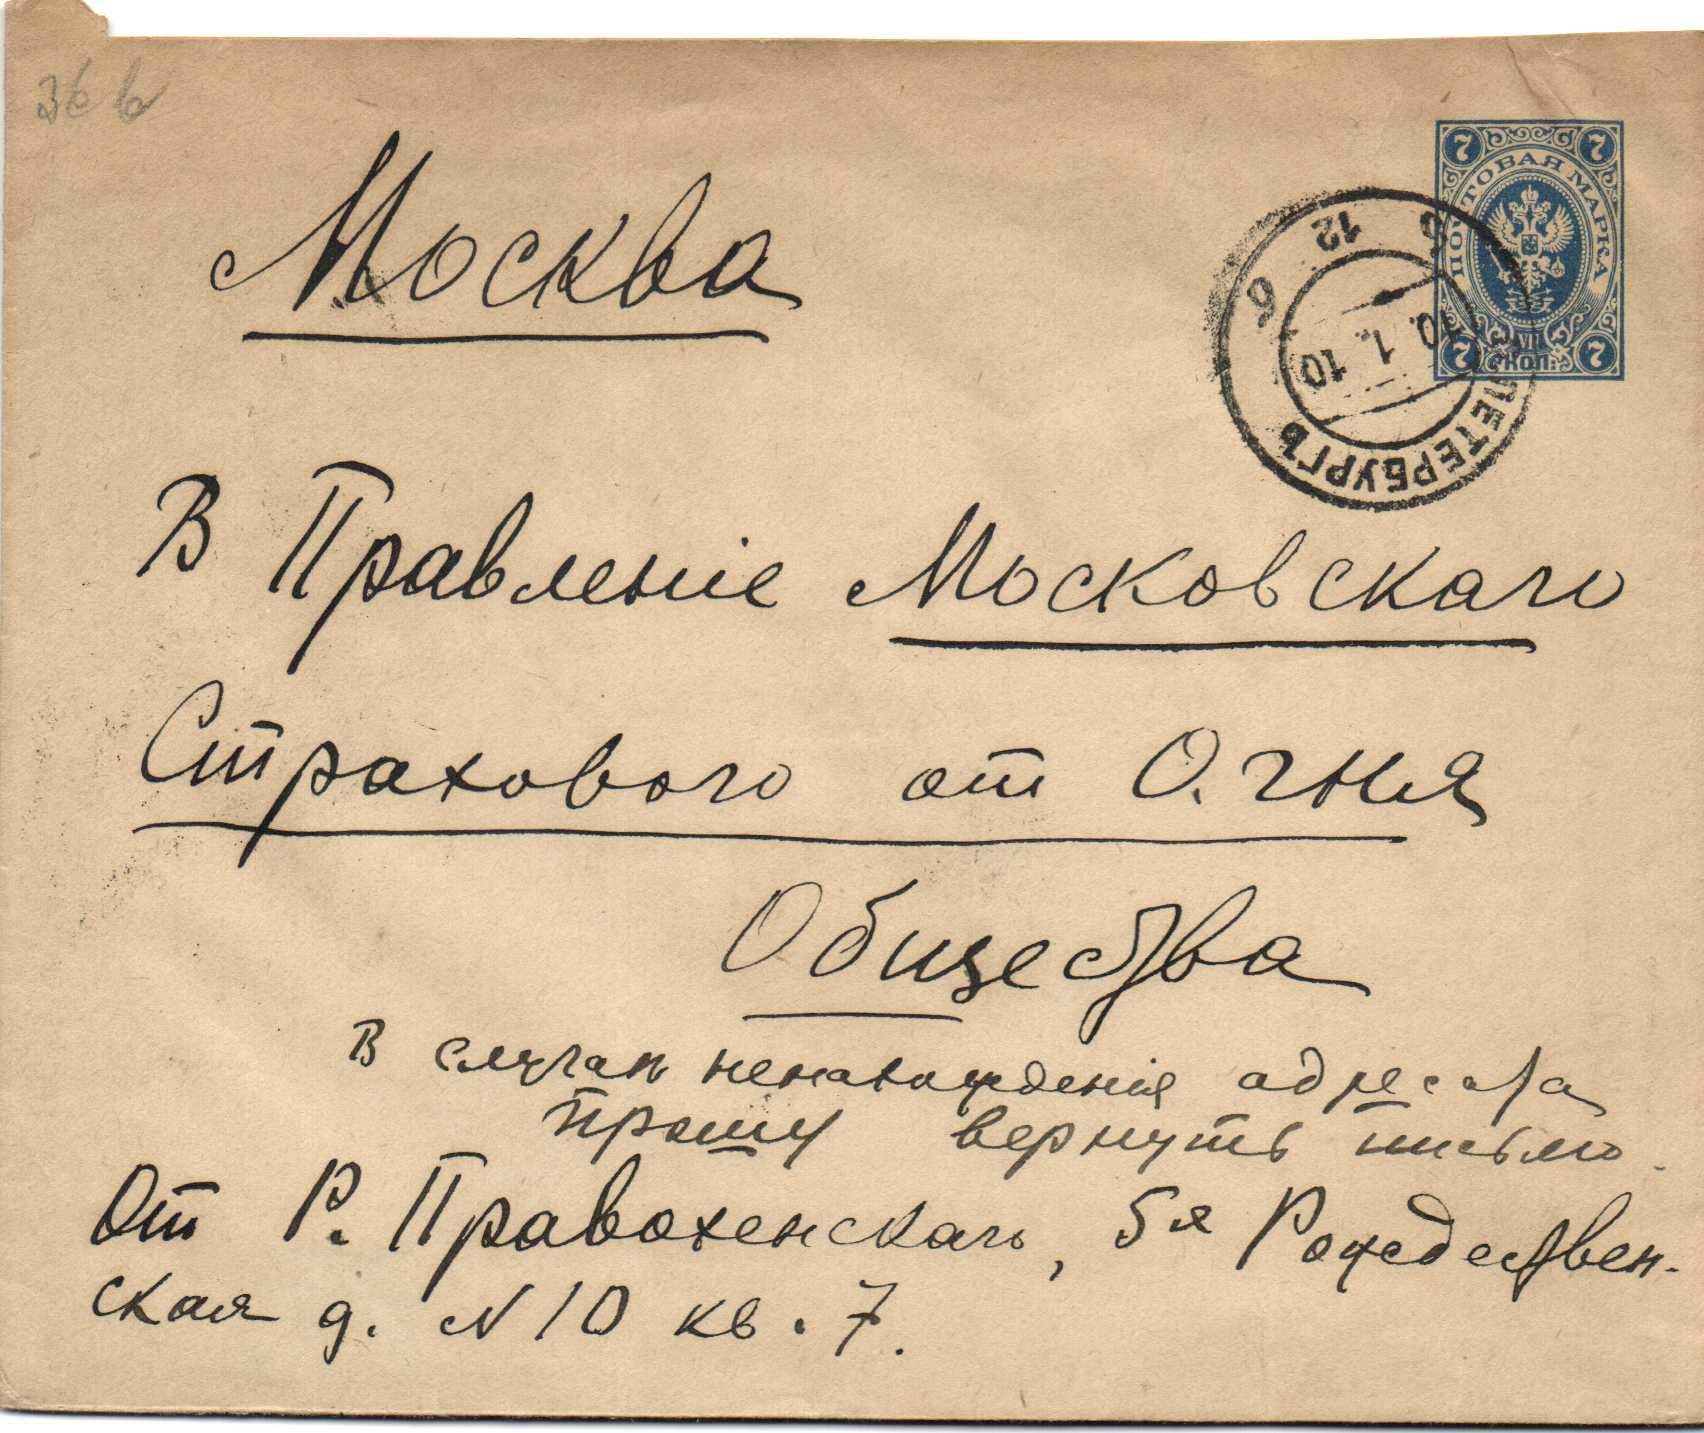 Москва
7 7
ПОЧТОВАЯ МАРКА
7 VII КОП. 7
6 12 S
10. 1. 10
ПЕТЕРБУРГЪ
В Правленіе Московскаго
Страхового от Огня
Общества
В случаѣ ненахожденія адресата
прошу вернуть письмо.
От Р. Правохенскаго, 5я Рождествен-
ская д. N 10 кв. 7.